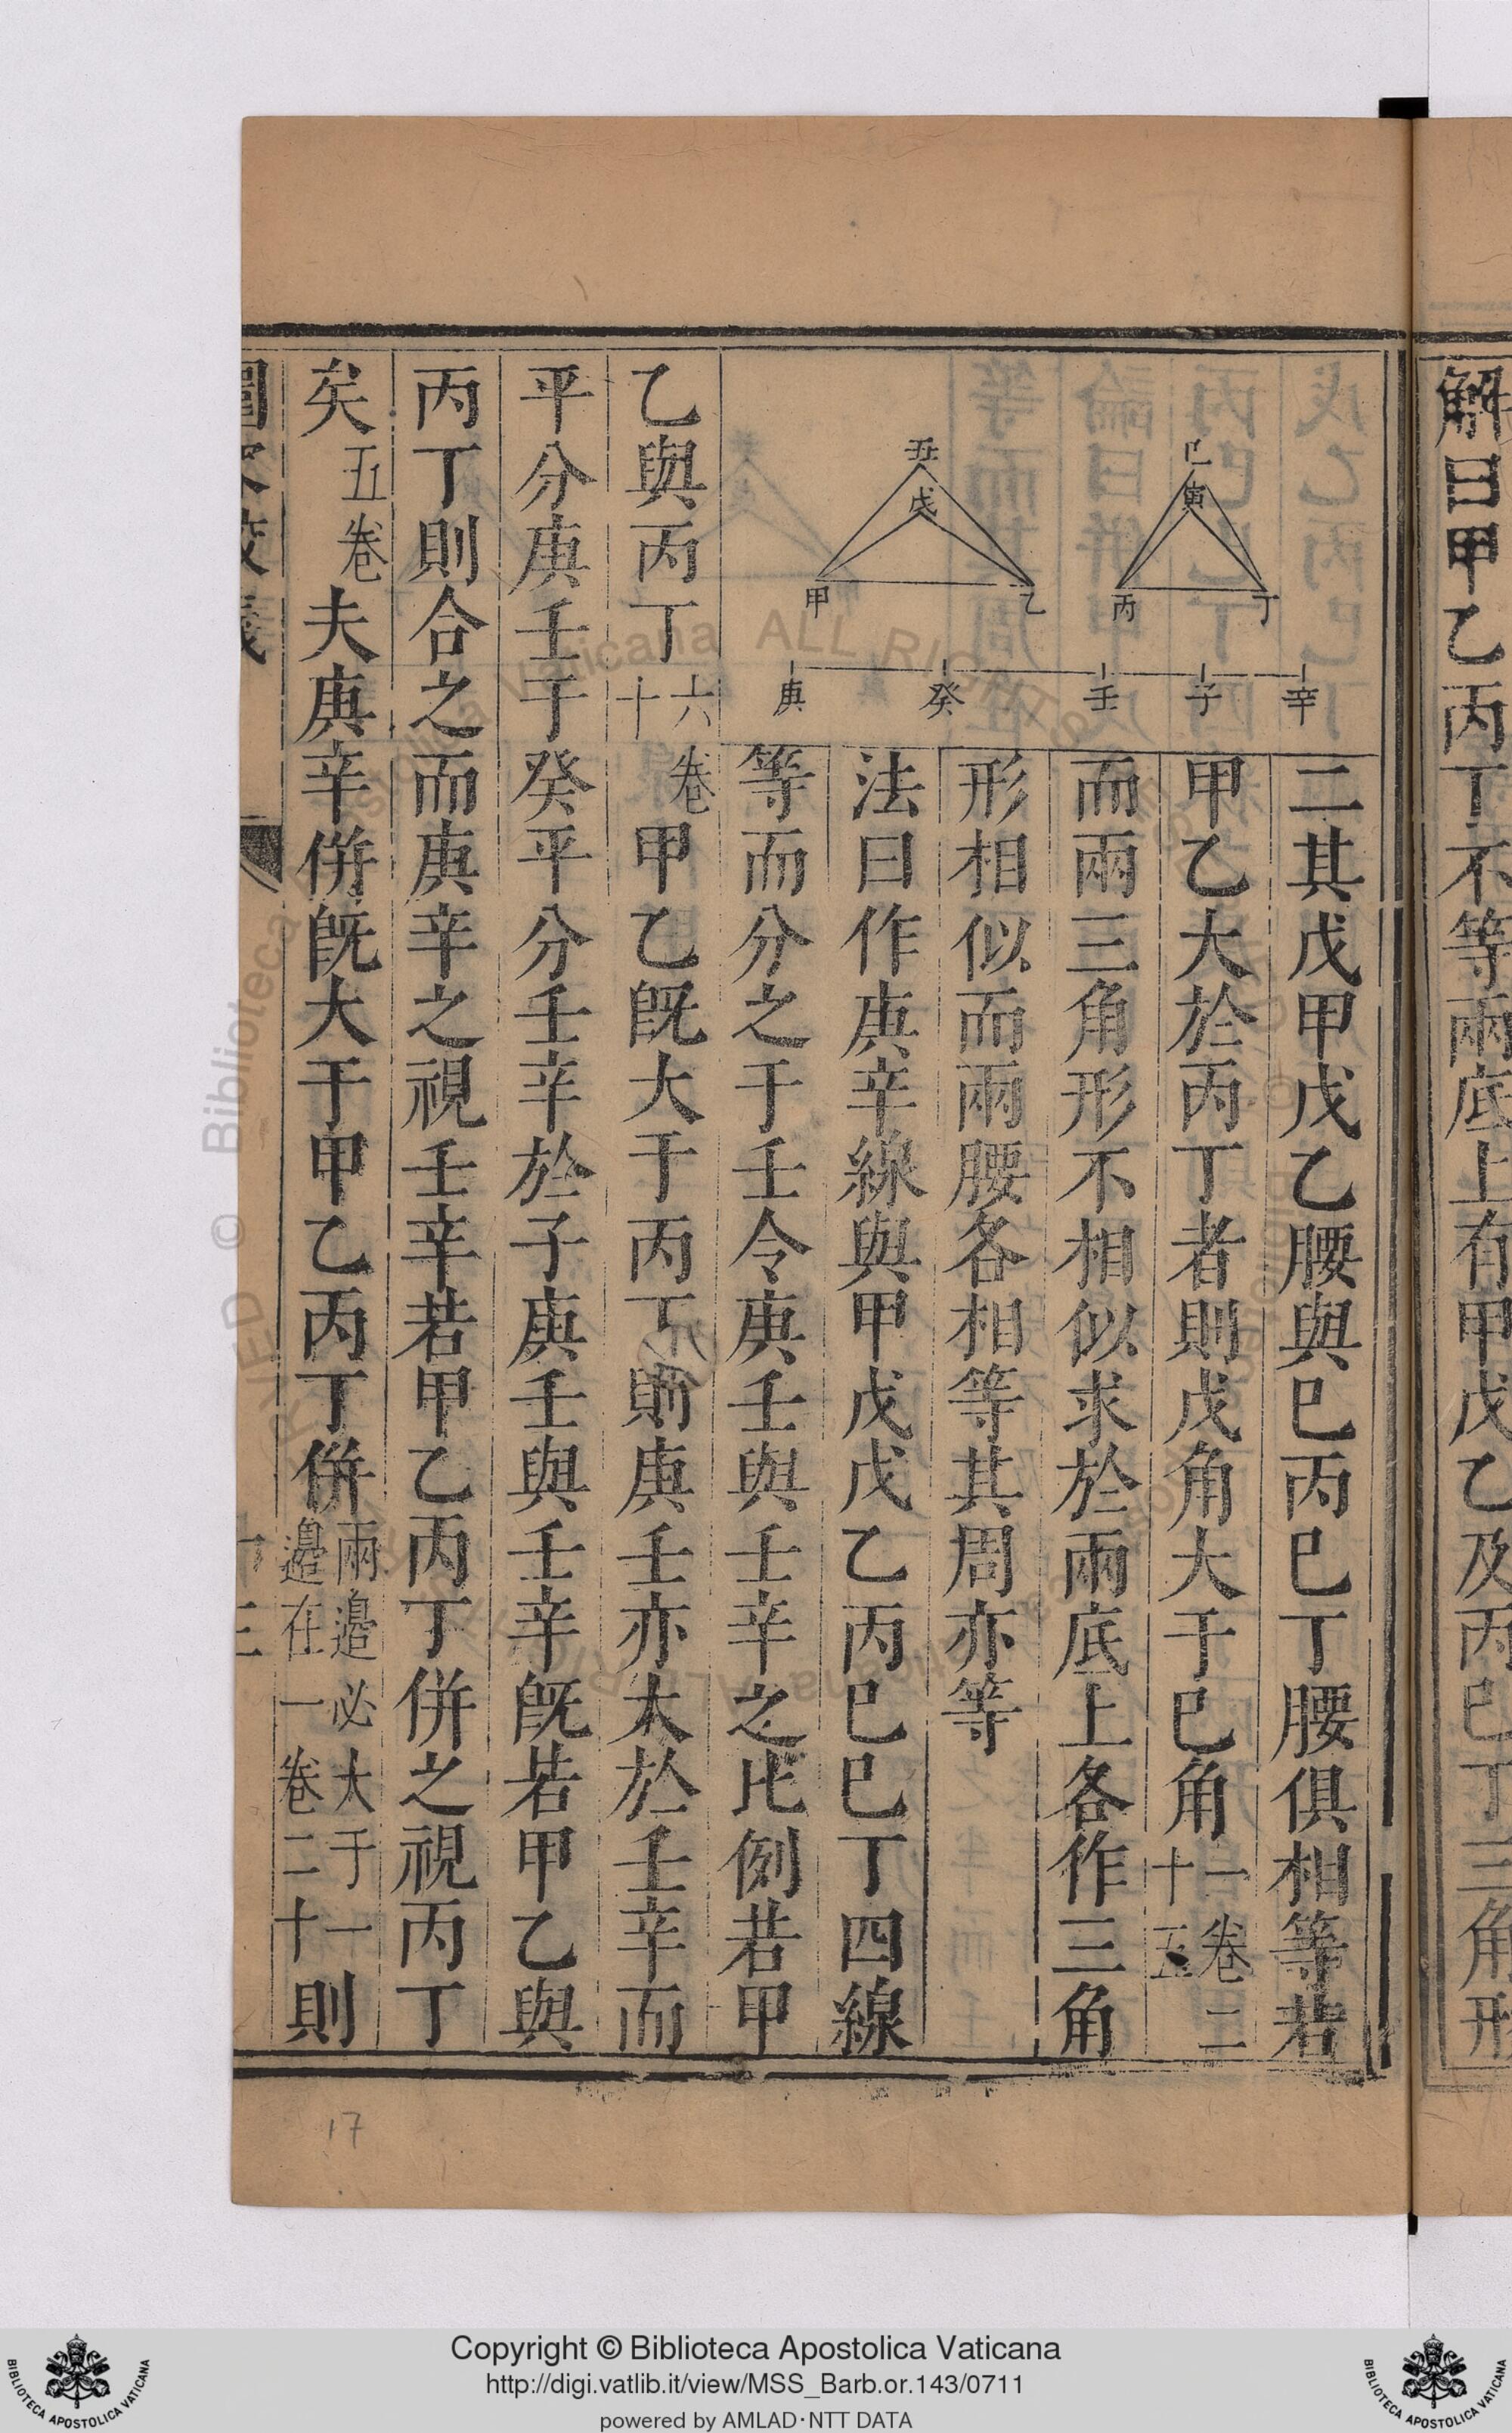 解曰甲乙丙丁不等兩底上有甲戊乙及丙巳丁三角形
二其戊甲戊乙腰與巳丙巳丁腰俱相等若
甲乙大於丙丁者則戊角大于巳角一卷二十五
而兩三角形不相似求於兩底上各作三角
形相似而兩腰各相等其周亦等
法曰作庚辛線與甲戊戊乙丙巳巳丁四線
等而分之于壬令庚壬與壬辛之比例若甲
乙與丙丁六卷十甲乙既大于丙丁則庚壬亦大於壬辛而
平分庚壬于癸平分壬辛於子庚壬與壬辛既若甲乙與
丙丁則合之而庚辛之視壬辛若甲乙丙丁併之視丙丁
矣五卷夫庚辛併既大于甲乙丙丁併兩邉必大于一邉在一卷二十則
丑
戊
甲
乙
巳
寅
丙
丁
庚
癸
壬
子
辛
17
Copyright © Biblioteca Apostolica Vaticana
http://digi.vatlib.it/view/MSS_Barb.or.143/0711
powered by AMLAD·NTT DATA
BIBLIOTECA APOSTOLICA VATICANA
BIBLIOTECA APOSTOLICA VATICANA